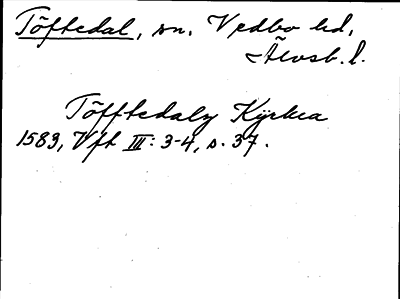 Töftedal, sn. Vedbo hd,
Älvsb. l.
Töfftedalz Kÿrkia
1583, Vft III: 3-4, s. 37.